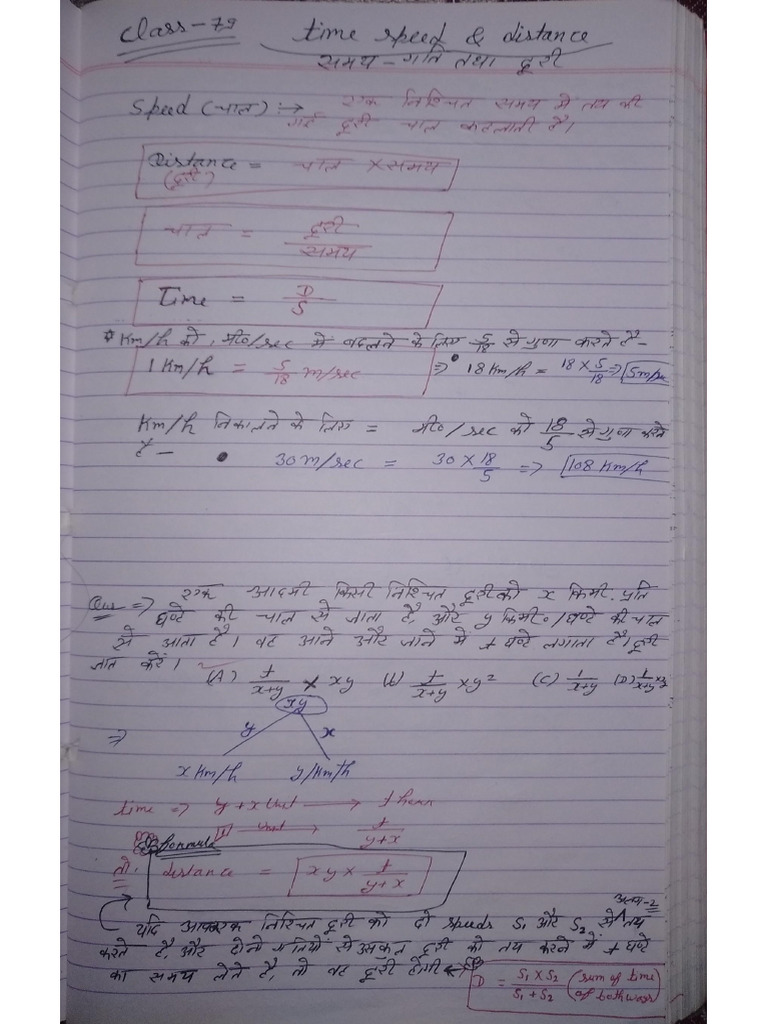 Class-79 time speed & distance
समय-गति तथा दूरी
Speed (चाल) :→ एक निश्चित समय में तय की
गई दूरी चाल कहलाती है।
Distance = चाल × समय
(दूरी)
चाल = दूरी / समय
Time = D / S
* Km/h को, मी०/sec में बदलने के लिए 5/18 से गुणा करते है-
1 Km/h = 5/18 m/sec ⇒ • 18 Km/h = 18 × 5/18 ⇒ 5m/sec
Km/h निकालने के लिए = मी०/sec को 18/5 से गुणा करते
है-
• 30 m/sec = 30 × 18/5 ⇒ 108 Km/h
Que ⇒ एक आदमी किसी निश्चित दूरी को x किमी. प्रति
घण्टे की चाल से जाता है, और y किमी०/घण्टे की चाल
से आता है। वह आने और जाने में t घण्टे लगाता है। दूरी
ज्ञात करें। (A) t/x+y × xy (b) t/x+y × y² (C) 1/x+y (D)
xy
y x
⇒
x Km/h y/Km/h
time ⇒ y+x Unit → t hour
1 Unit → t/y+x
formula
तो. distance = xy × t/y+x
यदि निश्चित दूरी को दो speeds S₁ और S₂ से अलग-2 तय
करते है, और दोनों गतियों से दूरी को तय करने में t घण्टे
का समय लेते है, तो वह दूरी होगी
D = S₁ × S₂ / S₁ + S₂ (sum of time of both ways)